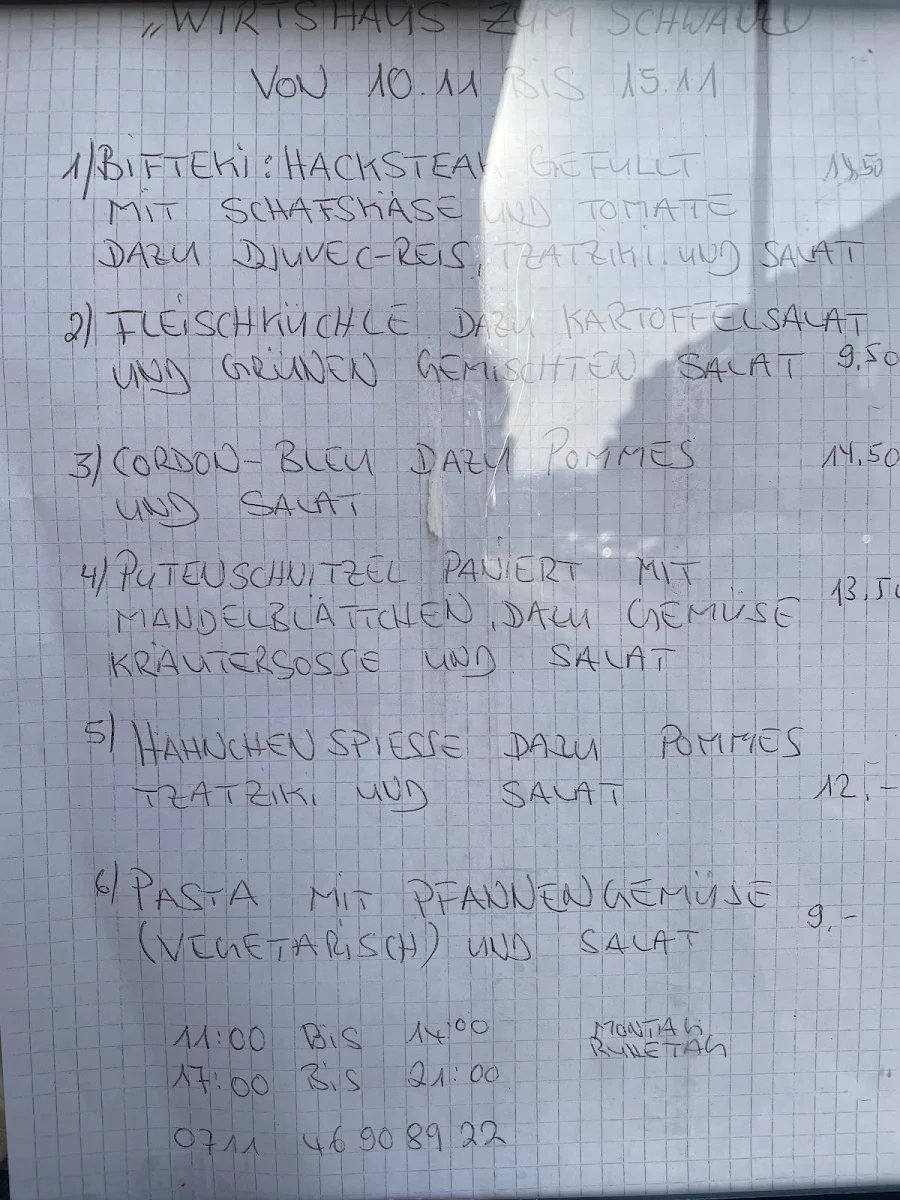 „WIRTSHAUS ZUM
VON 10.11 BIS 15.11
1) BIFTEKI: HACKSTEAK GEFÜLLT
MIT SCHAFSKÄSE UND TOMATE
DAZU DJUVEC-REIS, TZATZIKI UND SALAT
2) FLEISCHKÜCHLE DAZU KARTOFFELSALAT
UND GRÜNEN GEMISCHTEN SALAT 9,50
3) CORDON-BLEU DAZU POMMES 14,50
UND SALAT
4) PUTENSCHNITZEL PANIERT MIT
MANDELBLÄTTCHEN, DAZU GEMÜSE 13,50
KRÄUTERSOSSE UND SALAT
5) HÄHNCHENSPIESSE DAZU POMMES
TZATZIKI UND SALAT 12,-
6) PASTA MIT PFANNENGEMÜSE 9,-
(VEGETARISCH) UND SALAT
11:00 BIS 14:00 MONTAG
RUHETAG
17:00 BIS 21:00
0711 46 90 89 22